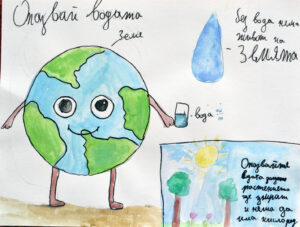 Опазвай водата
Земя
без вода няма
живот на
Земята
- вода
Опазвайте
водата
растенията
ще умрат
и няма да
има кислород